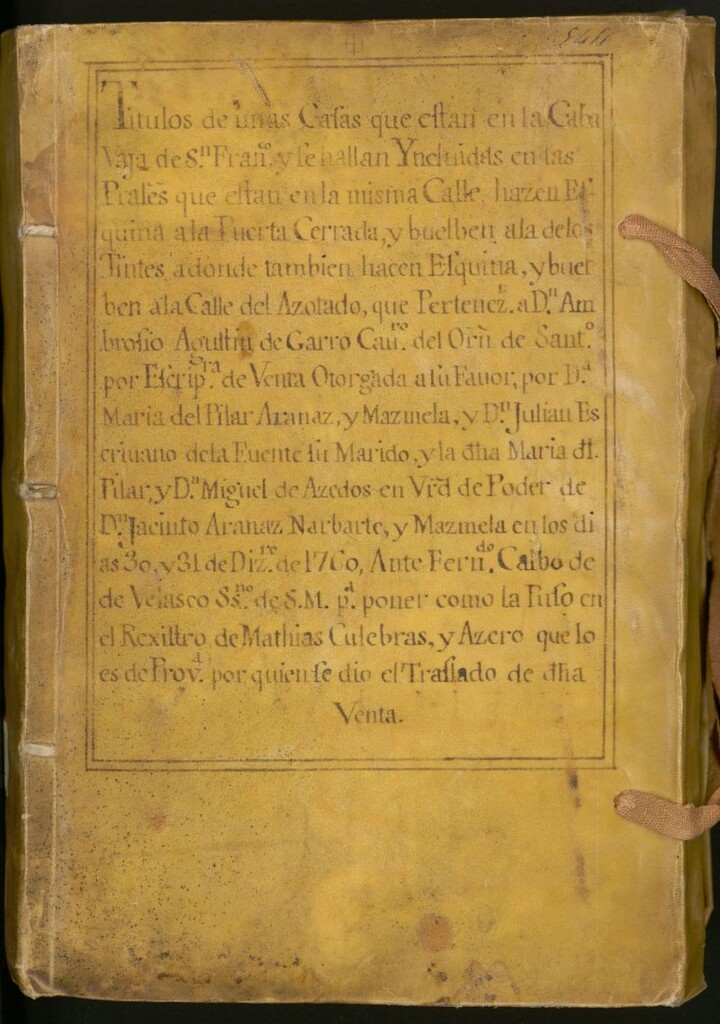 544
Titulos de unas Casas que estan en la Caba
Vaja de S.ⁿ Franᶜᵒ. y se hallan Yncluidas en las
Prales que estan en la misma Calle, hazen Es-
quina a la Puerta Cerrada, y buelben a la de los
Tintes adonde tambien hacen Esquina, y buel
ben a la Calle del Azotado, que Pertenezᵉ. a D.ⁿ Am
brosio Agustin de Garro Cauᵒ. del Orñ de Sant.ᵒ
por Escripᵗᵘʳᵃ. de Venta Otorgada a su Fauor, por D.ᵃ
Maria del Pilar Aranaz, y Mazmela, y D.ⁿ Julian Es
criuano de la Fuente su Marido, y la dha Maria dl.
Pilar, y D.ⁿ Miguel de Azedos en Vrd de Poder de
D.ⁿ Jacinto Aranaz Narbarte, y Mazmela en los di
as 30, y 31 de Dizʳᵉ. de 1760, Ante Fernᵈᵒ. Calbo de
de Velasco Ssⁿᵒ. de S.M. pᵃ. poner como la Puso en
el Rexistro de Mathias Culebras, y Azero que lo
es de Provᵃ. por quien se dio el Traslado de dha
Venta.